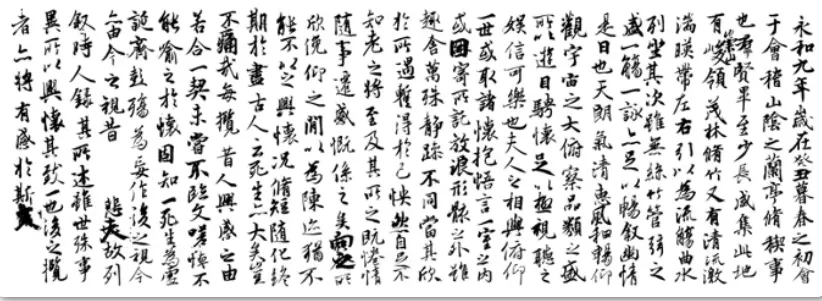 永和九年歲在癸丑暮春之初會
于會稽山陰之蘭亭脩稧事
也群賢畢至少長咸集此地
有崇山峻領茂林脩竹又有清流激
湍暎帶左右引以為流觴曲水
列坐其次雖無絲竹管弦之
盛一觴一詠亦足以暢敘幽情
是日也天朗氣清惠風和暢仰
觀宇宙之大俯察品類之盛
所以遊目騁懷足以極視聽之
娛信可樂也夫人之相與俯仰
一世或取諸懷抱悟言一室之內
或因寄所託放浪形骸之外雖
趣舍萬殊靜躁不同當其欣
於所遇暫得於己怏然自足不
知老之將至及其所之既惓情
隨事遷感慨係之矣向之所
欣俛仰之閒以為陳迹猶不
能不以之興懷況脩短隨化終
期於盡古人云死生亦大矣豈
不痛哉每攬昔人興感之由
若合一契未嘗不臨文嗟悼不
能喻之於懷固知一死生為虛
誕齊彭殤為妄作後之視今
亦由今之視昔 悲夫故列
敘時人錄其所述雖世殊事
異所以興懷其致一也後之攬
者亦將有感於斯文